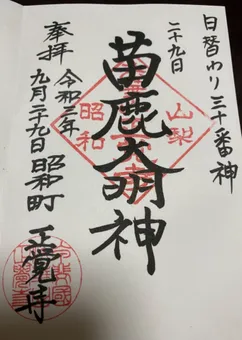 日替わり三十番神
二十九日
苗鹿大明神
山梨
昭和
奉拝 令和三年
九月二十九日 昭和町
正覚寺